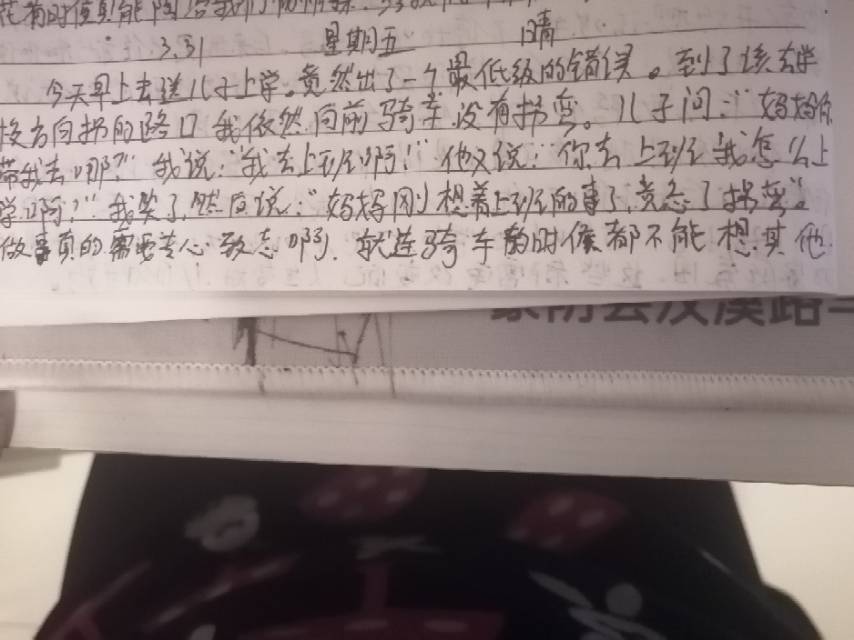 3.31 星期五 晴
今天早上去送儿子上学。竟然出了一个最低级的错误。到了该去学
校方向拐的路口我依然向前骑车没有拐弯。儿子问:"妈妈你
带我去哪?"我说:"我去上班啊!"他又说:"你去上班我怎么上
学啊?"我笑了,然后说:"妈妈刚想着上班的事了,竟忘了拐弯"。
做事真的需要专心致志啊。就连骑车的时候都不能想其他